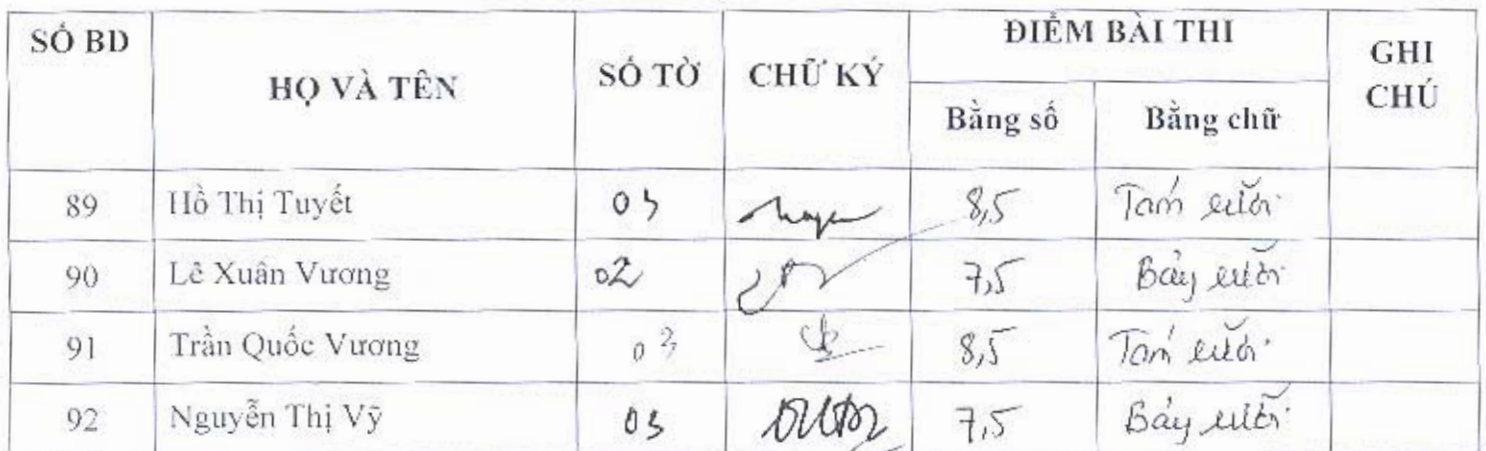 SỐ BD HỌ VÀ TÊN SỐ TỜ CHỮ KÝ ĐIỂM BÀI THI GHI CHÚ
Bằng số Bằng chữ
89 Hồ Thị Tuyết 03 8,5 Tám rưỡi
90 Lê Xuân Vương 02 7,5 Bảy rưỡi
91 Trần Quốc Vương 03 8,5 Tám rưỡi
92 Nguyễn Thị Vỹ 03 7,5 Bảy rưỡi